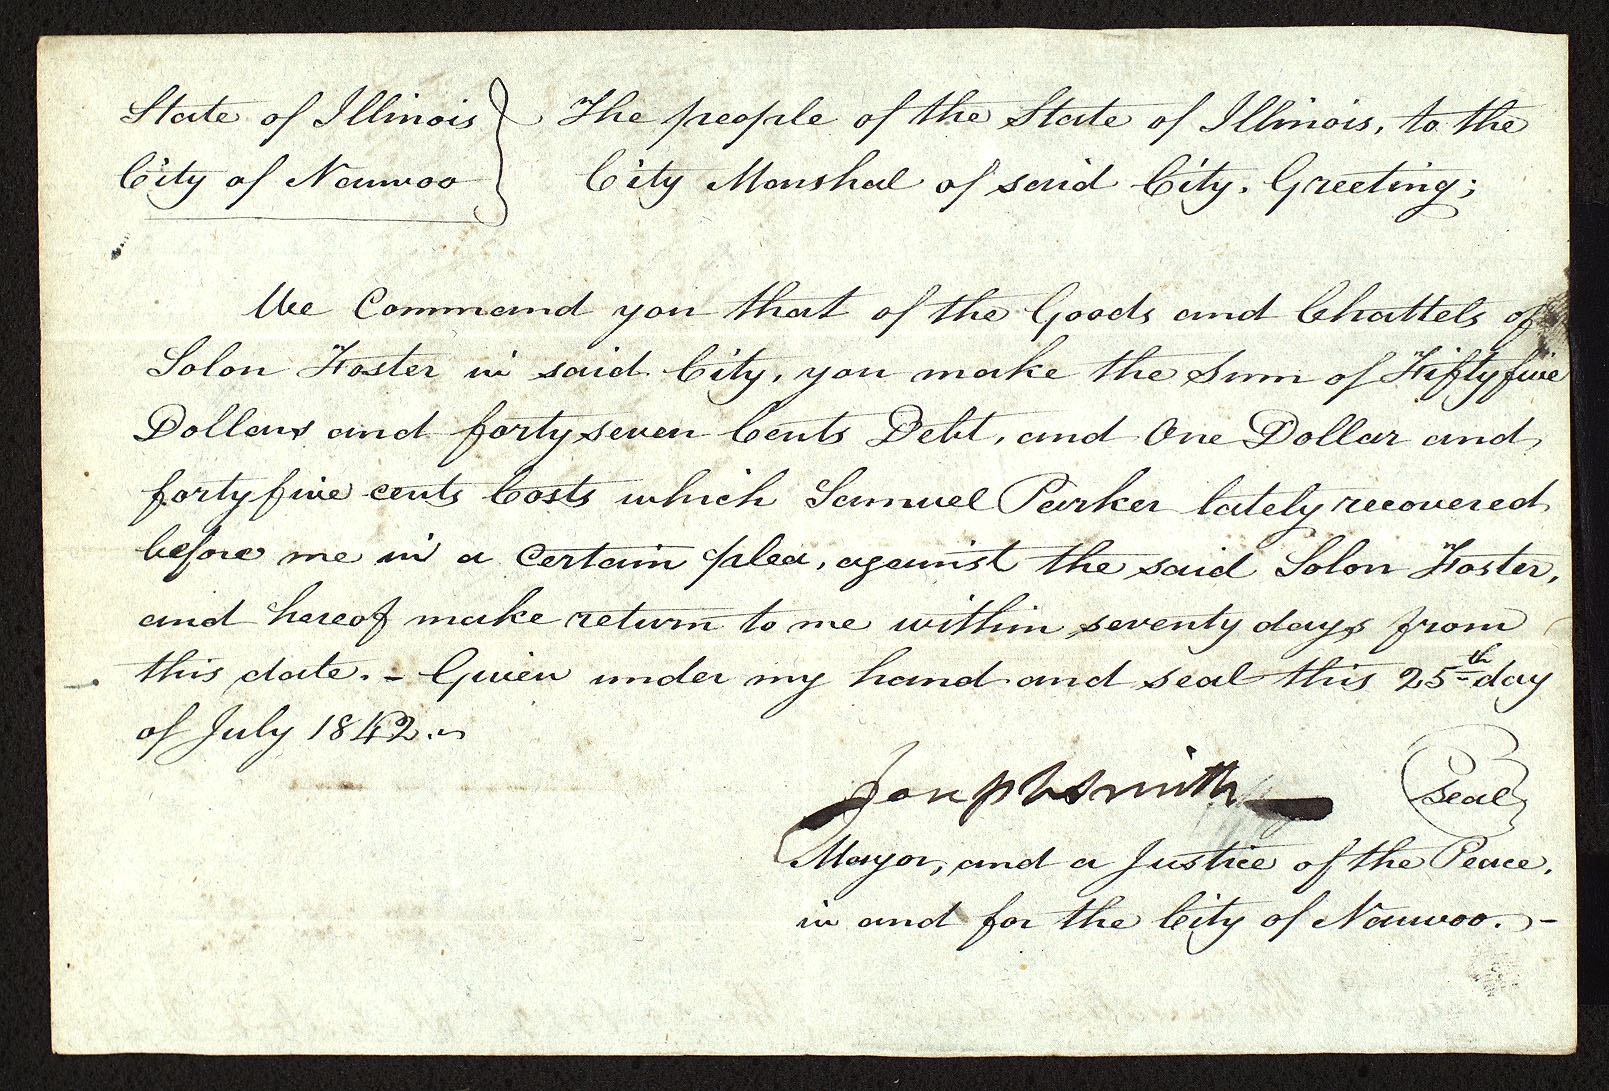 State of Illinois } The people of the State of Illinois, to the
City of Nauvoo } City Marshal of said City, Greeting;
We Command you that of the Goods and Chattels of
Solon Foster in said City, you make the Sum of Fiftyfive
Dollars and forty seven Cents Debt, and One Dollar and
fortyfive cents Costs which Samuel Parker lately recovered
before me in a Certain plea, against the said Solon Foster,
and hereof make return to me within seventy days from
this date. - Given under my hand and seal this 25th day
of July 1842.
Joseph Smith
Seal
Mayor, and a Justice of the Peace,
in and for the City of Nauvoo. -